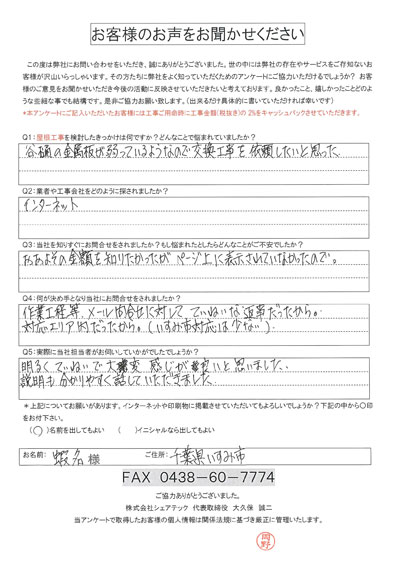 お客様のお声をお聞かせください
この度は弊社にお問い合わせをいただき、誠にありがとうございました。世の中には弊社の存在やサービスをご存知ないお
客様が沢山いらっしゃいます。その方たちに弊社をよく知っていただくためのアンケートにご協力いただけるでしょうか? お客
様のご意見をお聞かせいただき今後の活動に反映させていただきたいと考えております。良かったこと、嬉しかったことどのよ
うな些細な事でも結構です。是非ご協力お願い致します。(出来るだけ具体的に書いていただければ幸いです)
*本アンケートにご記入いただいたお客様には工事ご用命時に工事金額(税抜き)の 2%をキャッシュバックさせていただきます。
Q1:屋根工事を検討したきっかけは何ですか?どんなことで悩まれていましたか?
谷樋の金属板が弱っているようなので交換工事を依頼したいと思った
Q2:業者や工事会社をどのように探されましたか?
インターネット
Q3:当社を知りすぐにお問合せをされましたか?もし悩まれたとしたらどんなことがご不安でしたか?
おおよその金額を知りたかったが ページ上に表示されていなかったので。
Q4:何が決め手となり当社にお問合せをされましたか?
作業工程等、メール問合せに対して、ていねいな返事だったから。
対応エリア内だったから。(いすみ市対応は少ない)
Q5:実際に当社担当者がお伺いしていかがでしたでしょうか?
明るくていねいで大変 感じが良いと思いました.
説明も分かりやすく話していただきました.
*上記についてお願いがあります。インターネットや印刷物に掲載させていただいてもよろしいでしょうか?下記の中から○印
をお付下さい。
(○)名前を出してもよい ( )イニシャルなら出してもよい
お名前: 蝦名 様 ご住所: 千葉県いすみ市
FAX 0438-60-7774
ご協力ありがとうございました。
株式会社シェアテック 代表取締役 大久保 誠二
当アンケートで取得したお客様の個人情報は関係法規に基づき厳正に管理いたします。
岡野